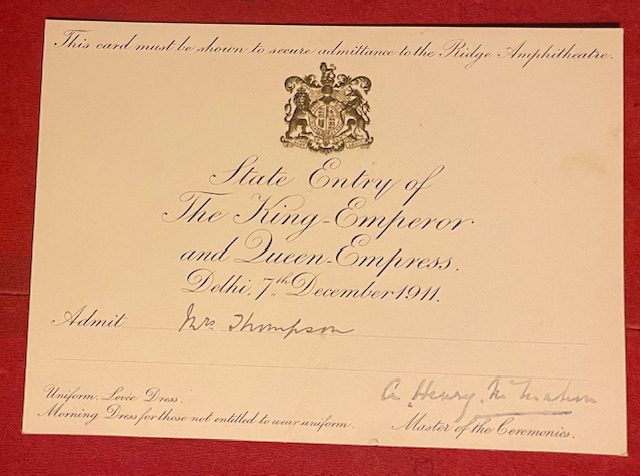 This card must be shown to secure admittance to the Ridge Amphitheatre.
State Entry of
The King-Emperor
and Queen-Empress.
Delhi, 7th December 1911.
Admit Mrs Thompson
Uniform: Levée Dress.
Morning Dress for those not entitled to wear uniform.
A. Henry McMahon
Master of the Ceremonies.